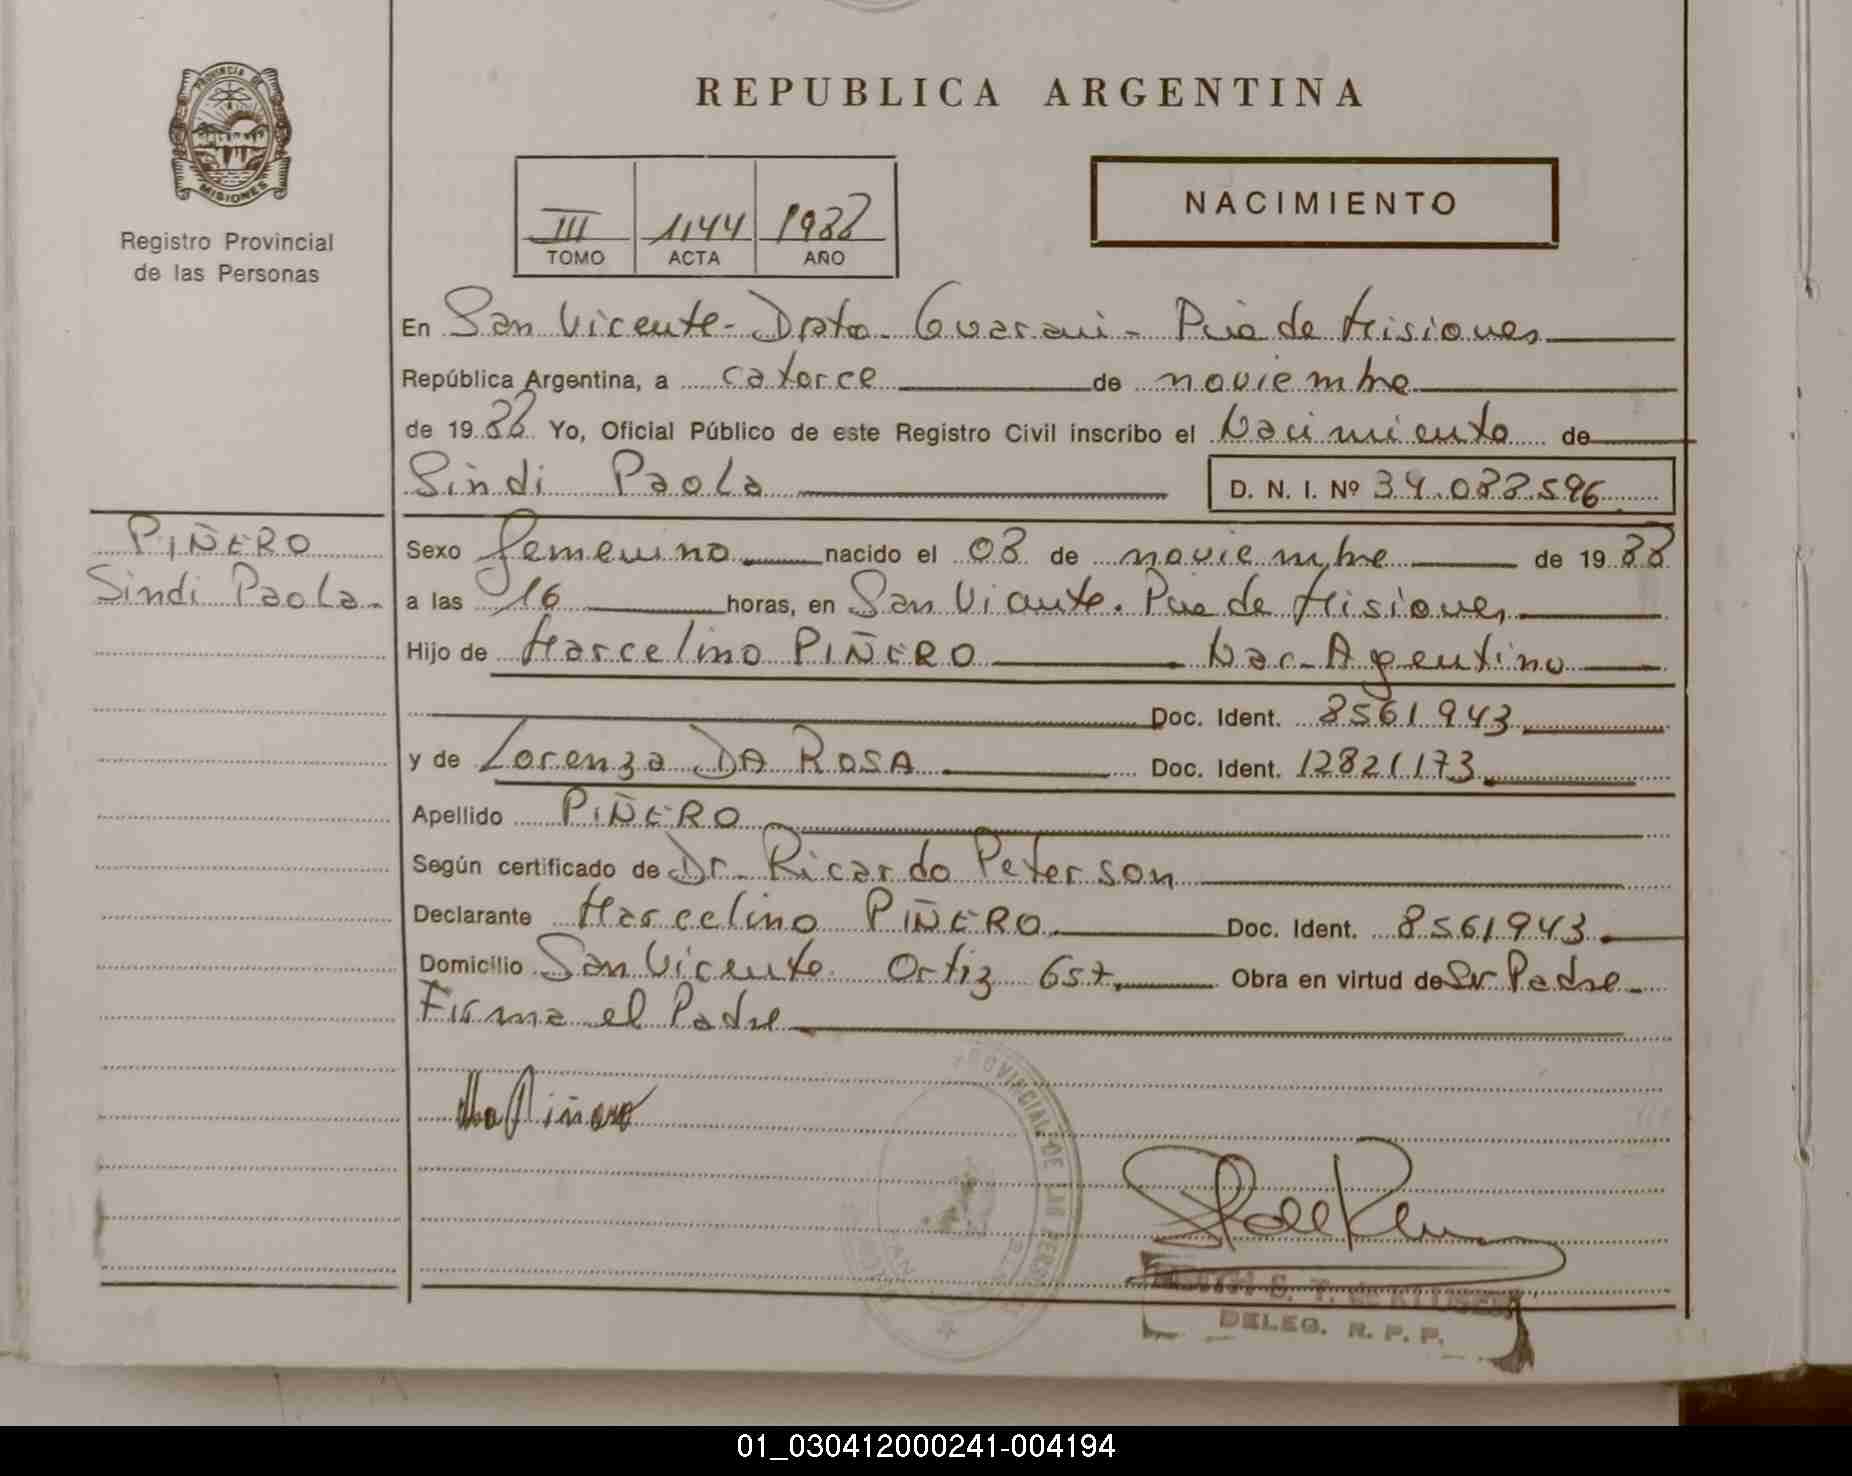 REPUBLICA ARGENTINA
PROVINCIA DE
MISIONES
Registro Provincial
de las Personas
NACIMIENTO
III 1144 1988
TOMO ACTA AÑO
En San Vicente - Dpto. Guarani - Pcia de Misiones
República Argentina, a catorce de noviembre
de 1988 Yo, Oficial Público de este Registro Civil inscribo el Nacimiento de
Sindi Paola D. N. I. Nº 34.088.596
PIÑERO
Sindi Paola.
Sexo femenino nacido el 08 de noviembre de 1988
a las 16 horas, en San Vicente. Pcia de Misiones
Hijo de Marcelino PIÑERO Nac. Agentino
Doc. Ident. 8561943
y de Lorenza DA ROSA Doc. Ident. 12821173
Apellido PIÑERO
Según certificado de Dr. Ricardo Peterson
Declarante Marcelino PIÑERO. Doc. Ident. 8561943.
Domicilio San Vicente Ortiz 657. Obra en virtud de Sr. Padre.
Firma el Padre
Piñero
PROVINCIAL DE LAS PERS
S. T. de
DELEG. R. P. P.
01_030412000241-004194